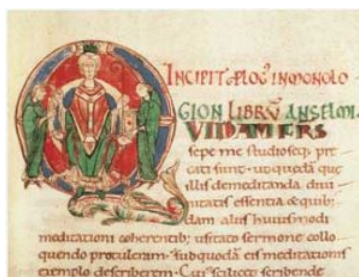 INCIPIT PLOG' IN MONOLO
GION LIBRŪ ANSELMI.
UIDAM FRS
sepe me studioseq; pre
cati sunt · ut quedā que
illis de meditanda diui
nitatis essentia & quib;
dam aliis huiusmodi
meditationi coherentib; usitato sermone collo
quendo protuleram · sub quodā eis meditationis
exemplo describerem · Cuius scilicet scribende